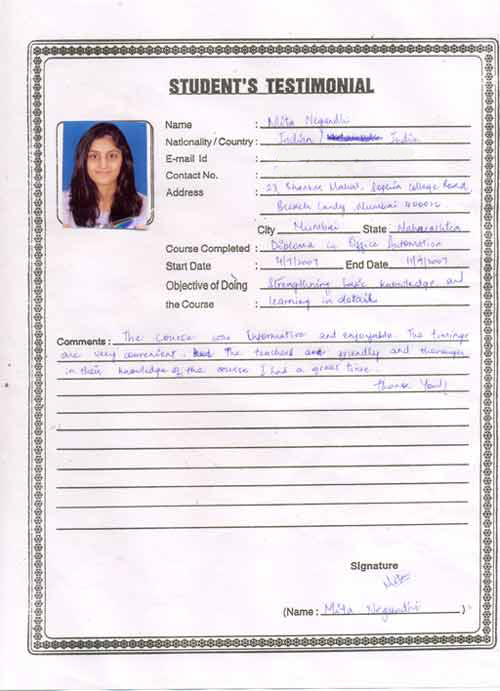 STUDENT'S TESTIMONIAL
Name : Mita Negandhi
Nationality / Country : Indian / India
E-mail Id :
Contact No. :
Address : 28 Khandar Mahal, Sophia College Road,
Breach Candy, Mumbai
City Mumbai State Maharashtra
Course Completed : Diploma in Office Automation
Start Date : 4/7/2007 End Date 11/9/2007
Objective of Doing : Strengthning basic knowledge and
the Course : learning in detail
Comments : The course was Informative and enjoyable. The timings
are very convenient. The teachers are friendly and thorough
in their knowledge of the course I had a great time.
Thank You!
Signature
Mita
(Name : Mita Negandhi )